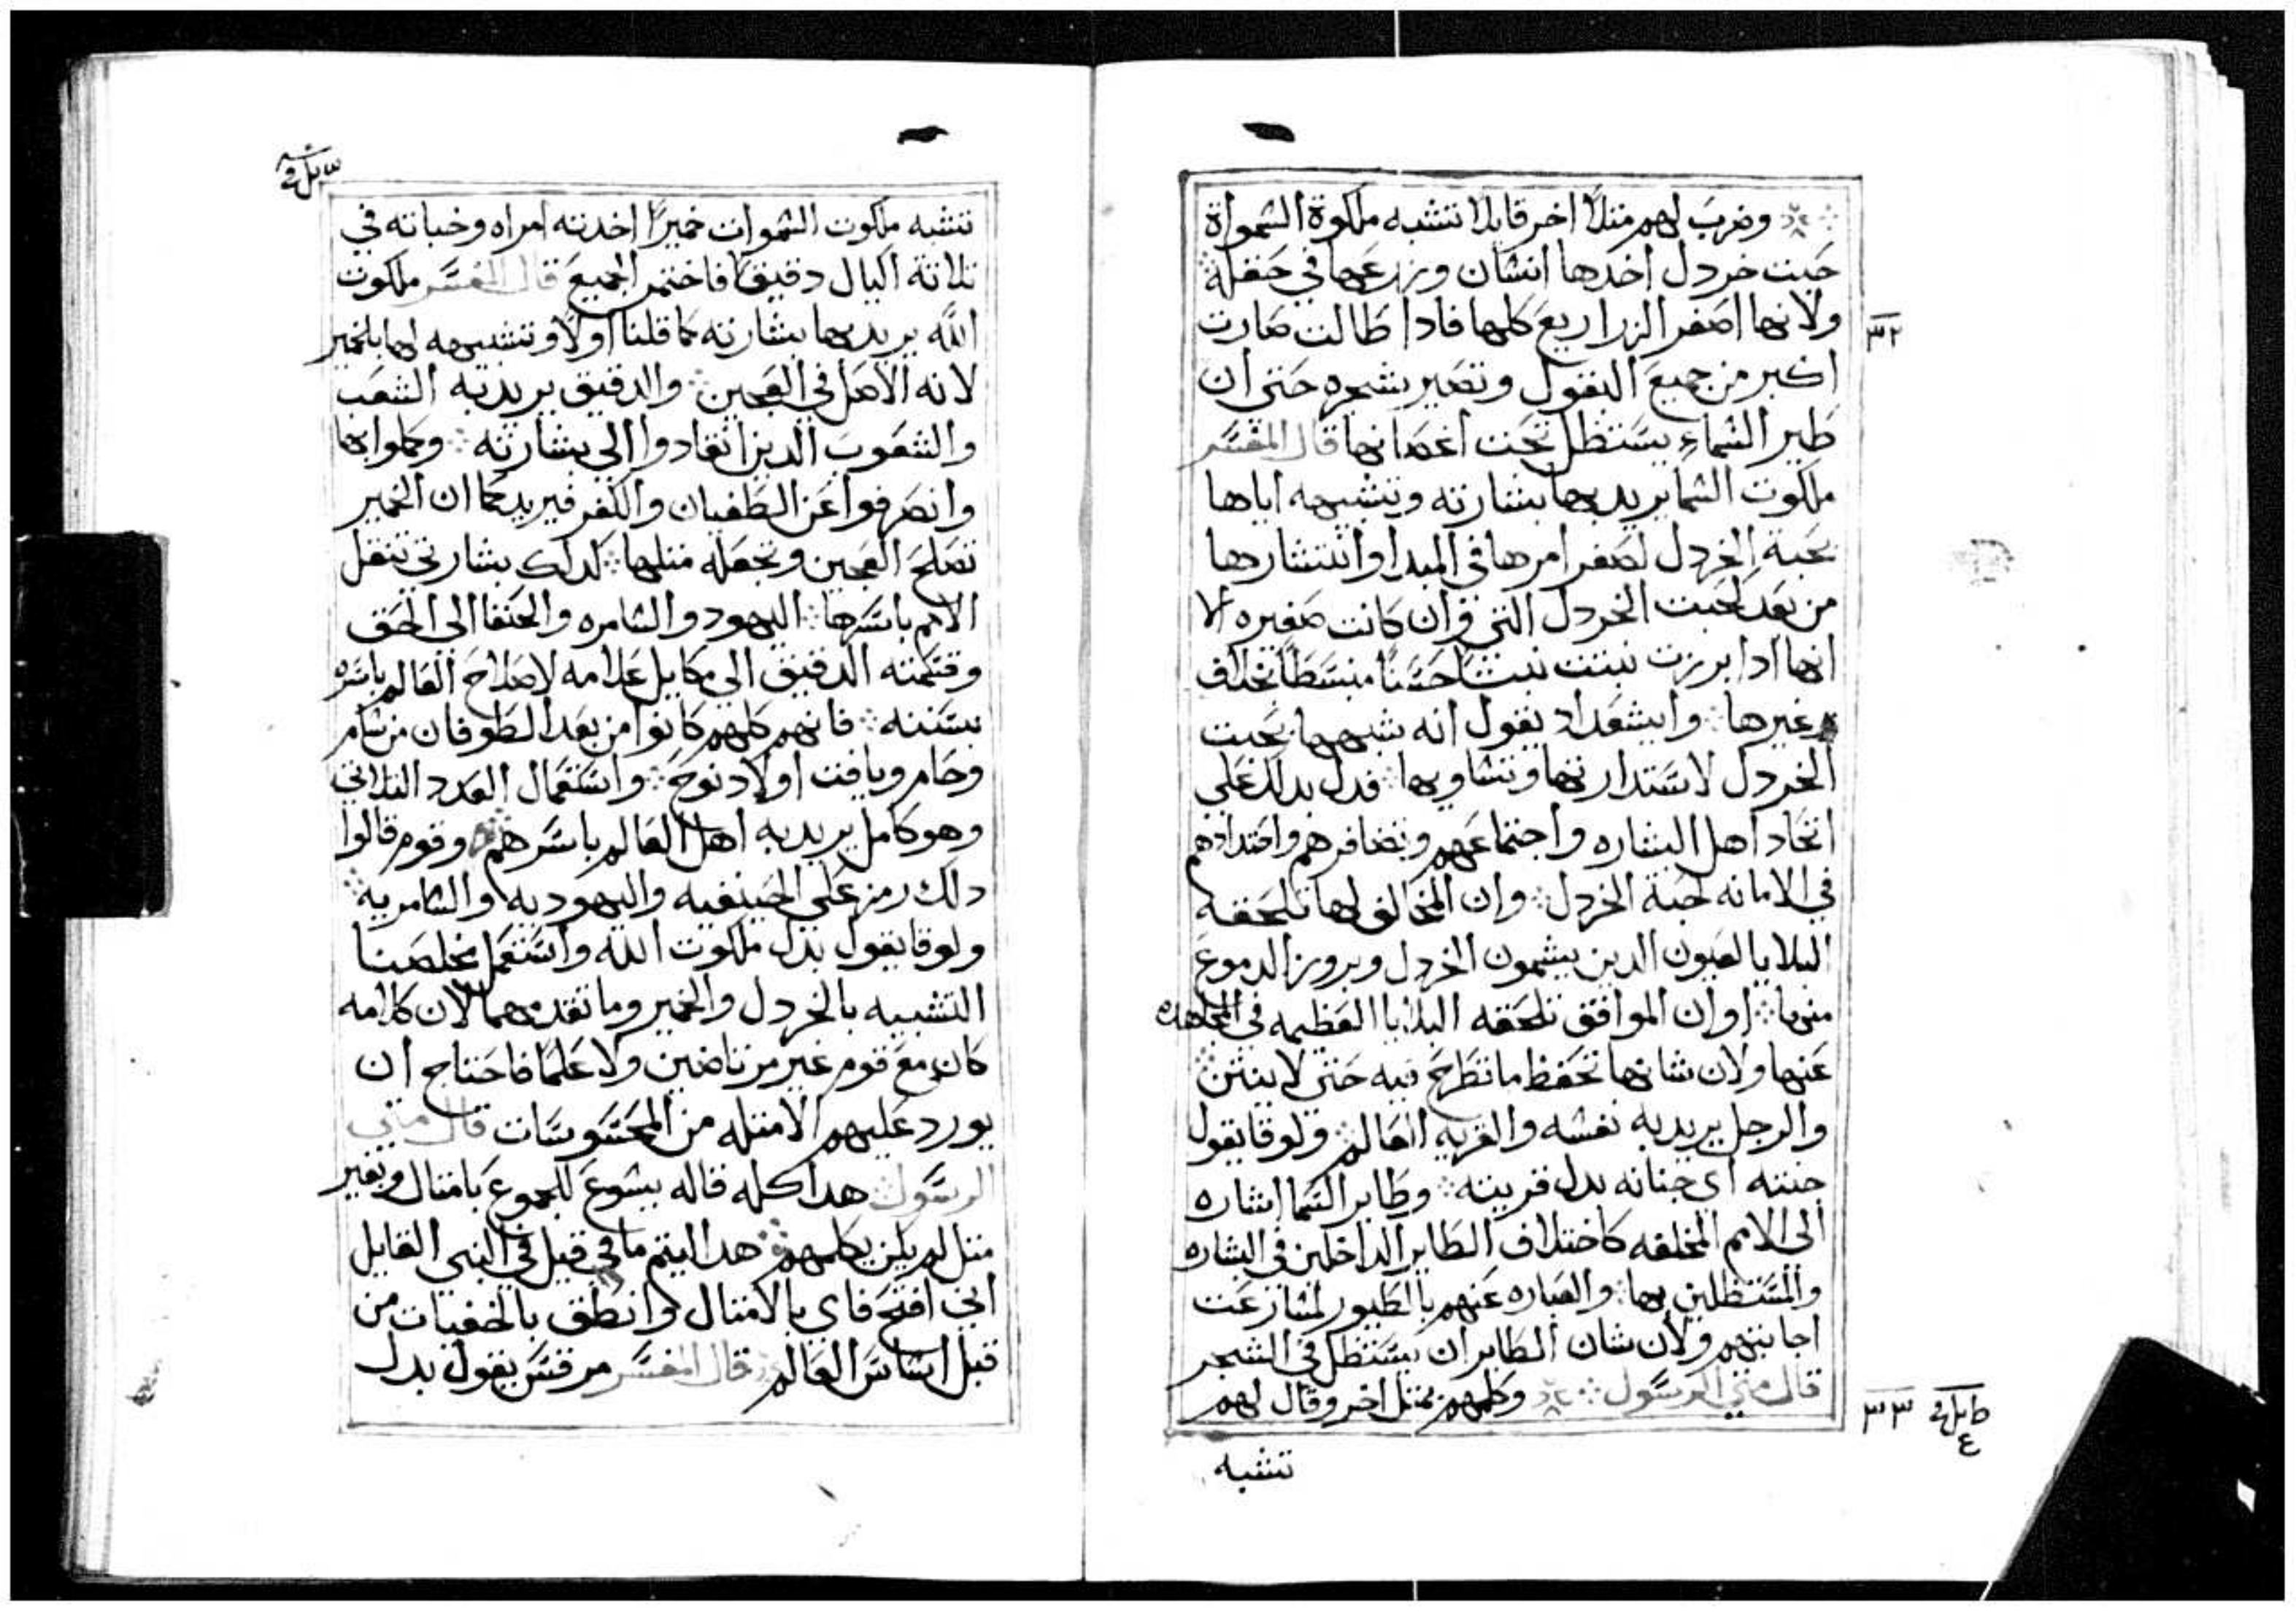 وضرب لهم مثلاً اخر قايلا تتشبه ملكوة السمواة
حبت خردل اخدها انسان وزرعها في حقله
ولانها اصغر الزراريع كلها فادا طالت صارت
٣٢
اكبر من جميع البقول وتصير شجره حتى ان
طير السماء يستظل تحت اغصانها قال المفسر
ملكوت السما يريد بها بشارته وتشبيهه اياها
بحبة الخردل لصغر امرها في المبدا وانتشارها
من بعد كحبت الخردل التي وان كانت صغيره الا
انها ادا برزت نبتت نبتا حسنا منبسطا بخلاف
غيرها وايشعداد يقول انه شبهها بحبت
الخردل لاستدارتها وتساويها فدل بدلك على
اتحاد اهل البشاره واجتماعهم وتضافرهم
في الامانه كحبة الخردل وان المخالف لها تلحقه
البلايا لعيون الدين يشمون الخردل وبروز الدموع
منها اوان الموافق تلحقه البلايا العظيمه في المجاهده
عنها ولان شانها تحفظ ما تطرح فيه حتى لا ينتن
والرجل يريد به نفسه والقريه العالم ولوقا يقول
جنته اي جنانه بدل قريته وطاير السما اشاره
الى الامم المختلفه كاختلاف الطاير الداخلين في البشاره
والمستظلين بها والعباره عنهم بالطيور لمسارعت
اجابتهم ولان شان الطاير ان يستظل في الشجر
قال متي الرسول وكلمهم بمثل اخر وقال لهم
٣٣
تتشبه
تتشبه ملكوت السموات خميراً اخدته امراه وخباته في
تلاتة اكيال دقيق فاختمر الجميع قال المفسر ملكوت
الله يريد بها بشارته كما قلنا اولا وتشبيهه لها بالخمير
لانه الاصل في العجين والدقيق يريد به الشعب
والشعوب الدين انقادوا الى بشارته وعملوا بها
وانصرفوا عن الطغيان والكفر فيريد كما ان الخمير
تصلح العجين وتجعله متلها كدلك بشارتي تنقل
الامم باسرها اليهود والسامره والحنفا الى الحق
وقسمته الدقيق الى مكايل علامه لاصلاح العالم باسره
بسننه فانهم كلهم كانوا من بعد الطوفان من سام
وحام ويافت اولاد نوح واستعمال العدد التلاتي
وهو كامل يريد به اهل العالم باسرهم وقوم قالوا
دلك رمز على الحنيفيه واليهوديه والسامريه
ولوقا يقول بدل ملكوت الله واستعمل مخلصنا
التشبيه بالخردل والخمير وما تقدمهما لان كلامه
كان مع قوم غير مرتاضين ولا علما فاحتاج ان
يورد عليهم الامتله من المحسوسات قال متي
الرسول هدا كله قاله يسوع للجموع بامتال وبغير
متل لم يكن يكلمهم هدا ليتم ما قيل في النبي القايل
اني افتح فاي بالامتال وانطق بالخفيات من
قبل اساس العالم قال المفسر مرقس يقول بدل